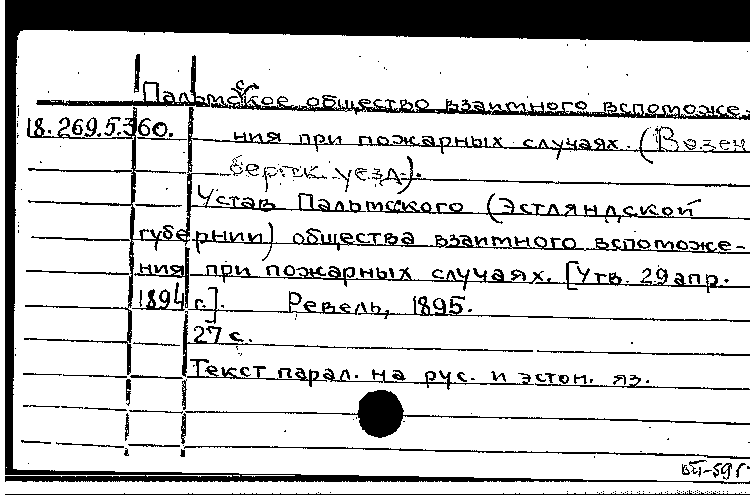 Пальмское общество взаимного вспоможе-
18.269.5.360. ния при пожарных случаях. (Везен
бергск. уезд).
Устав Пальмского (Эстляндской
губернии) общества взаимного вспоможе-
ния при пожарных случаях. [Утв. 29 апр.
1894 г.]. Ревель, 1895.
27 с.
Текст парал. на рус. и эстон. яз.